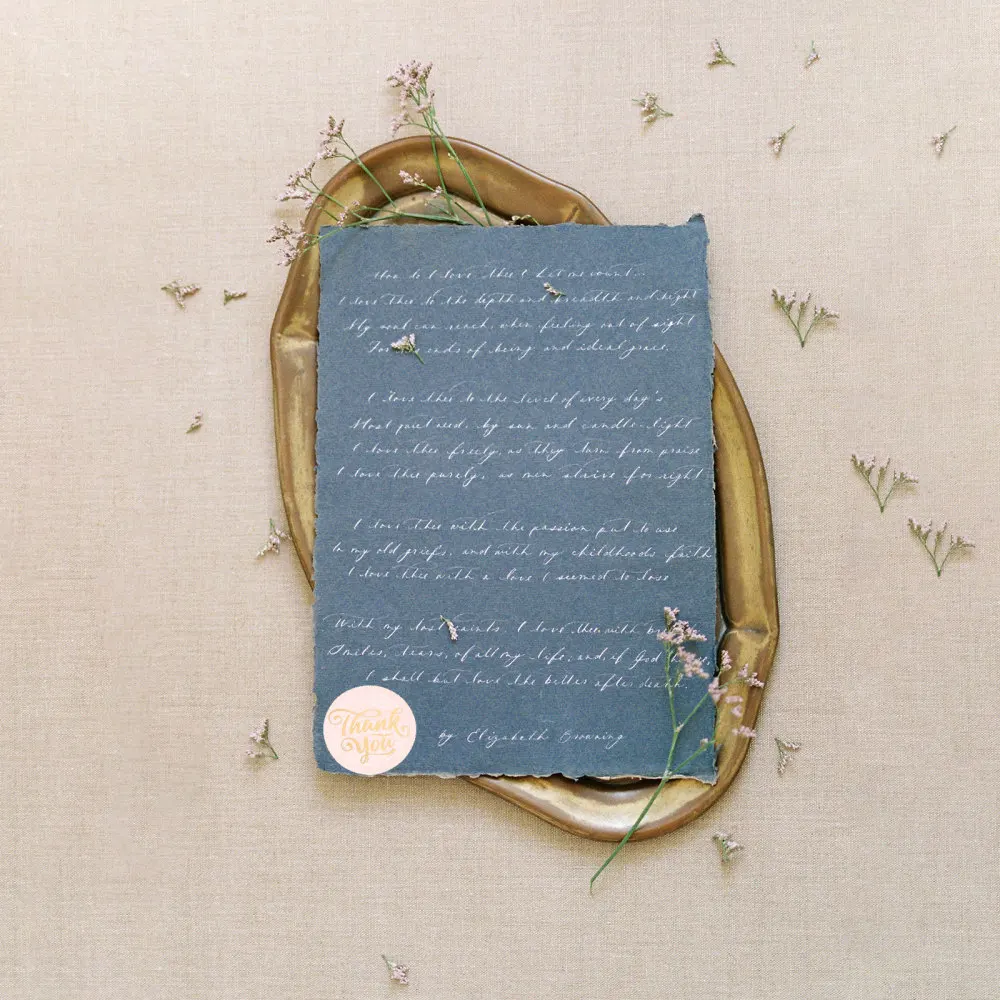 How do I love thee? Let me count...
I love thee to the depth and breadth and hight
My soul can reach, when feeling out of sight
For ends of being and ideal grace.
I love thee to the level of every day's
Most quiet need, by sun and candle-light
I love thee freely, as they turn from praise
I love thee purely, as men strive for right
I love thee with the passion put to use
In my old griefs, and with my childhoods faith
I love thee with a love I seemed to lose
With my lost saints, I love thee with
Smiles, tears, of all my life, and, if God
I shall but love the better after death.
by Elizabeth Browning
Thank
You